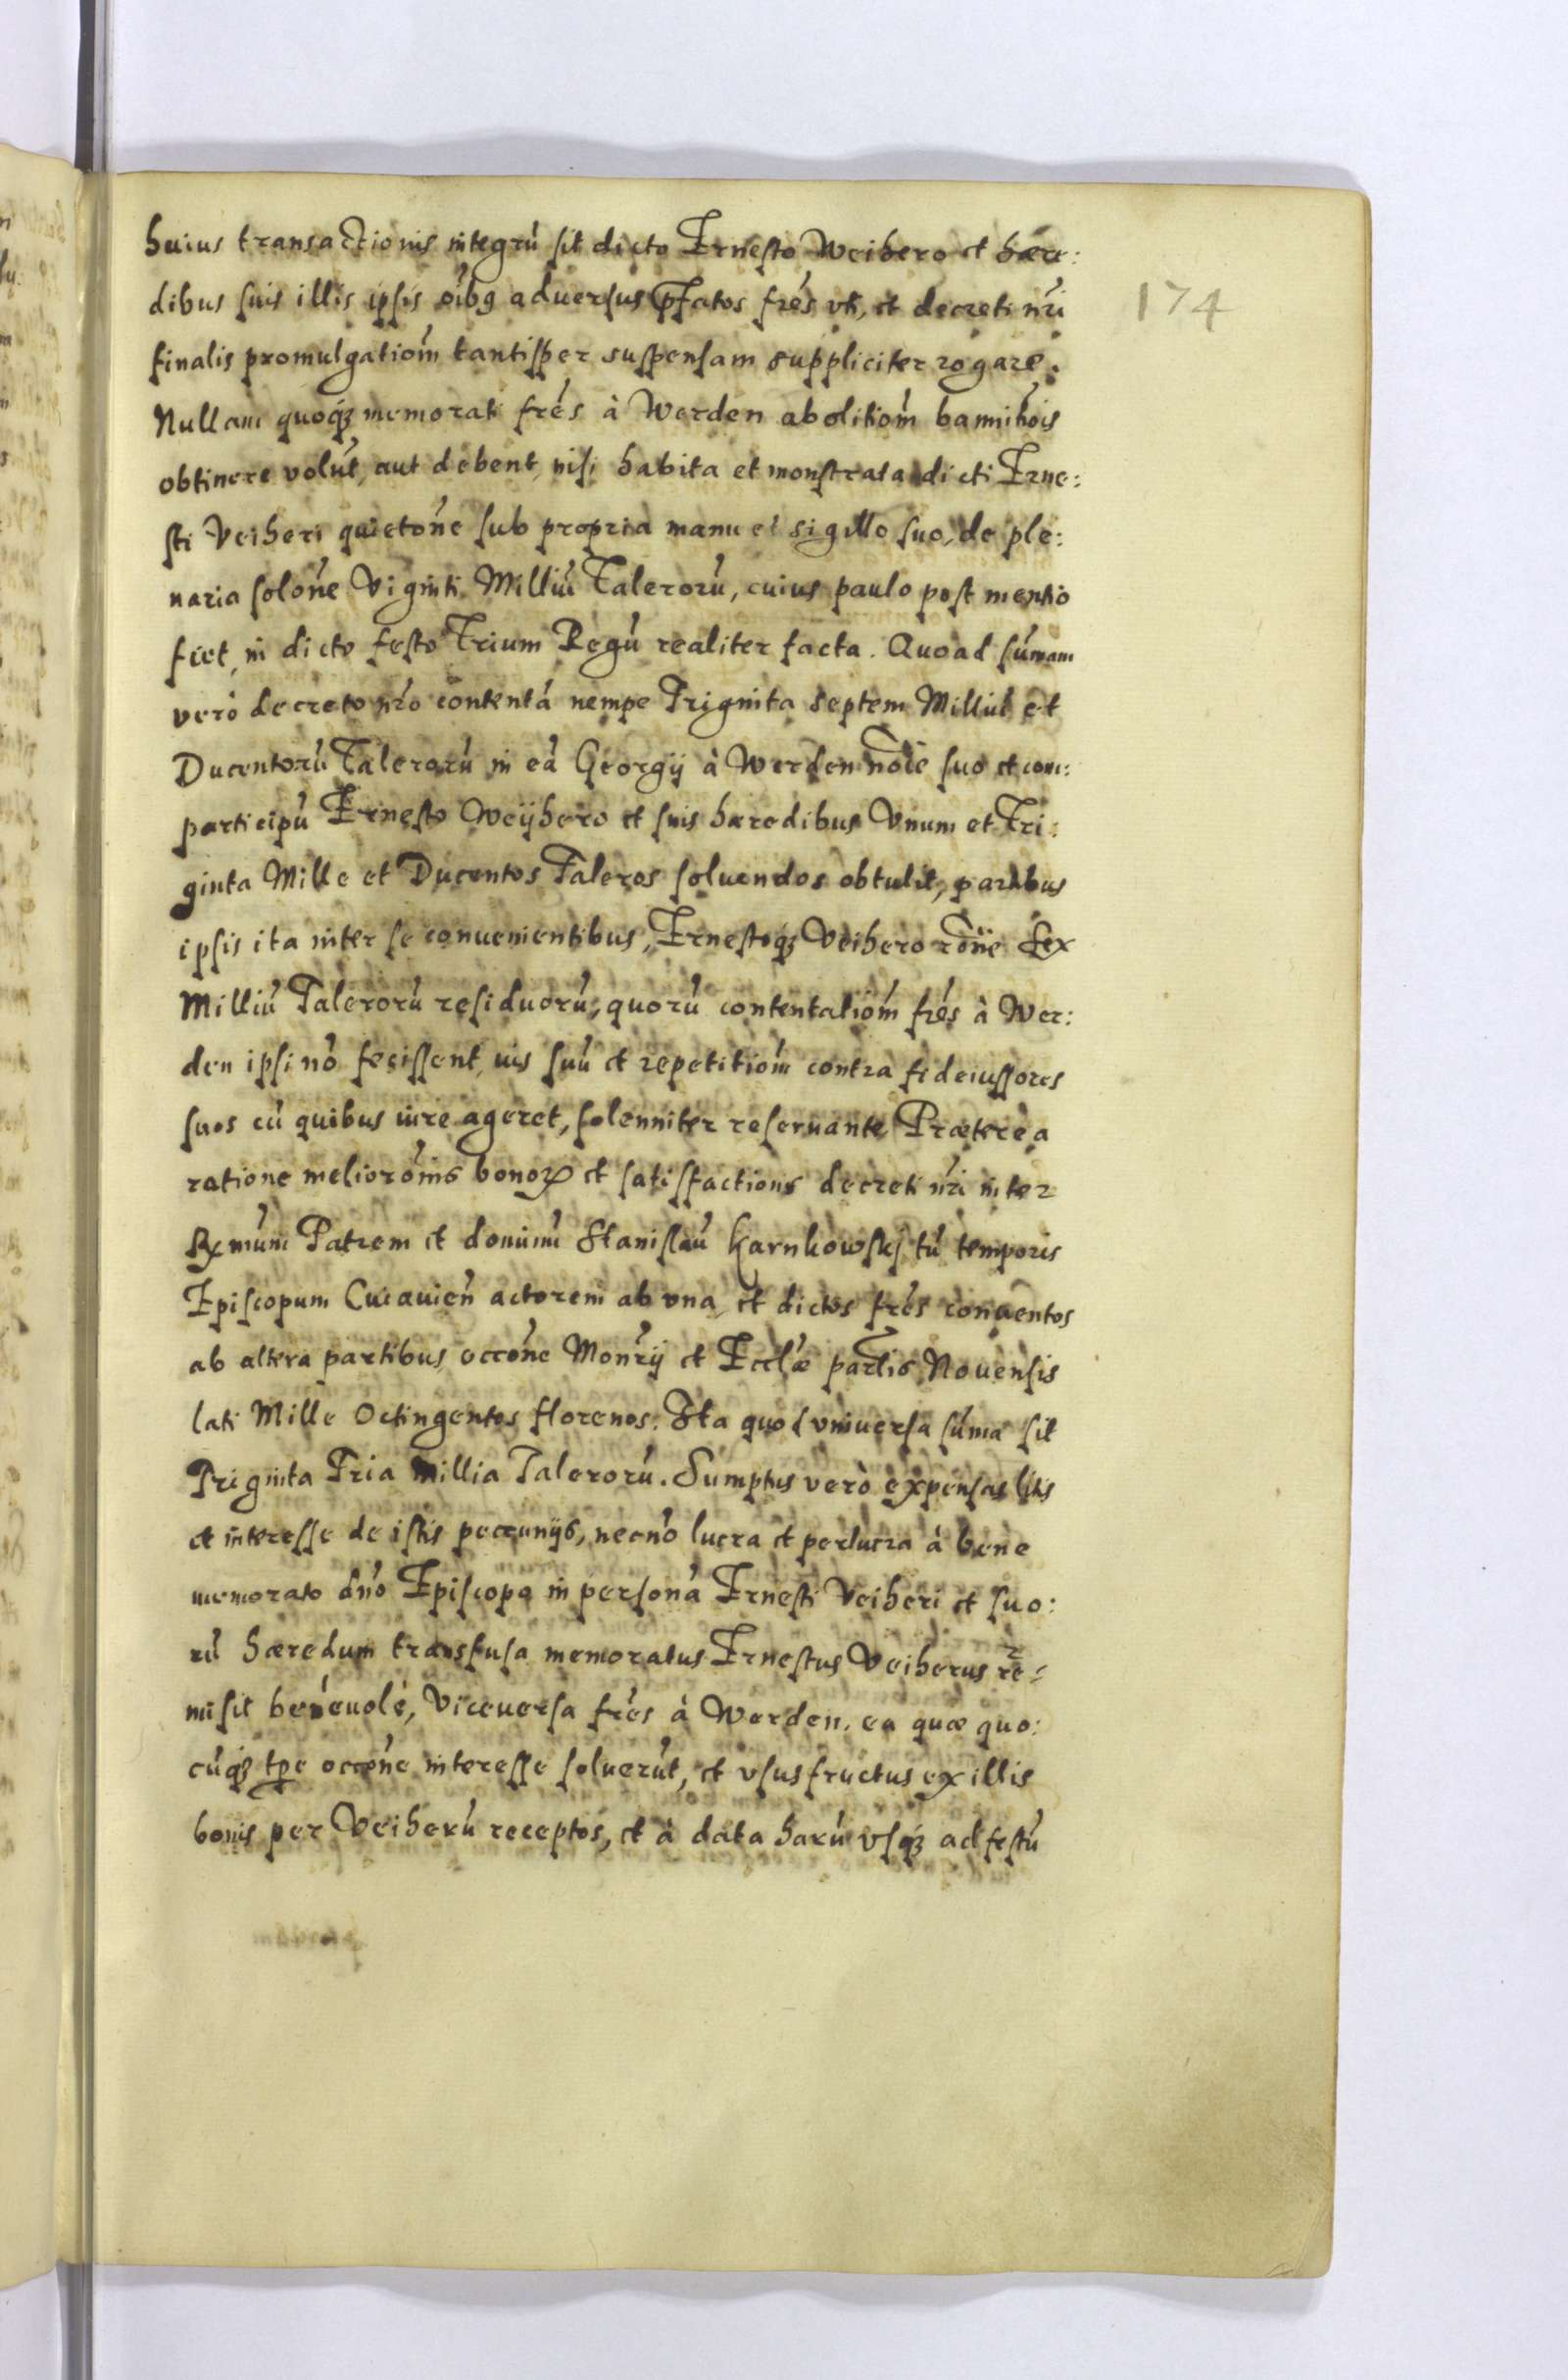 huius transactionis integrú sit dicto Ernesto Weihero et hære:
dibus suis illis ipsis oíbg aduersus pfatos frés vti, et decreti nŕi
174
finalis promulgatioḿ tantisper suspensam suppliciter rogare.
Nullam quoq́ʒ memorati frés à Werden abolitioḿ bannitóis
obtinere volút, aut debent, nisi habita et monstrata dicti Erne:
sti Veiheri quietońe sub propria manu et sigillo suo, de ple:
naria solońe Viginti Milliú Taleroru, cuius paulo post mentio
fiet, in dicto festo Trium Regú realiter facta. Quoad súmam
verò decreto nŕo contentá nempe Triginta septem Milliú et
Ducentorú Talerorú in eá Georgij à Werden noíe suo et con:
participú Ernesto Weijhero et suis hæredibus Vnum et Tri:
ginta Mille et Ducentos Taleros soluendos obtulit, partibus
ipsis ita inter se conuenientibus, Ernestoq́ʒ Veihero rońe Sex
Milliú Talerorú residuorú, quorú contentatioḿ frés à Wer:
den ipsi nó fecissent, ius suú et repetitioḿ contra fideiussores
suos cú quibus iure ageret, solenniter reseruante Prætereà
ratione meliorońis bonoꝝ et satisfactionis decreti nŕi inter
Rx̃mum Patrem et dominú Stanislaú Karnkowskj tú temporis
Episcopum Cuiauień actorem ab vna, et dictos frés conuentos
ab altera partibus, occońe Monŕij et Ecclǽ partis Nouensis
lati Mille Octingentos florenos. Ita quod vniuersa súma sit
Triginta Tria Millia Talerorú. Sumptus verò expensas litis
et interesse de istis peccunijs, necnó lucra et perlucra à bene
memorato dńo Episcopo in personá Ernesti Veiheri et suo:
rú hæredum transfusa memoratus Ernestus Veiherus re:
misit beneuolè, Viceuersa frés à Werden, ea quæ quo:
cúq́ʒ tp̃e occońe interesse soluerút, et vsusfructus ex illis
bonis per Veiherú receptos, et à data harú vsq́ʒ ad festú